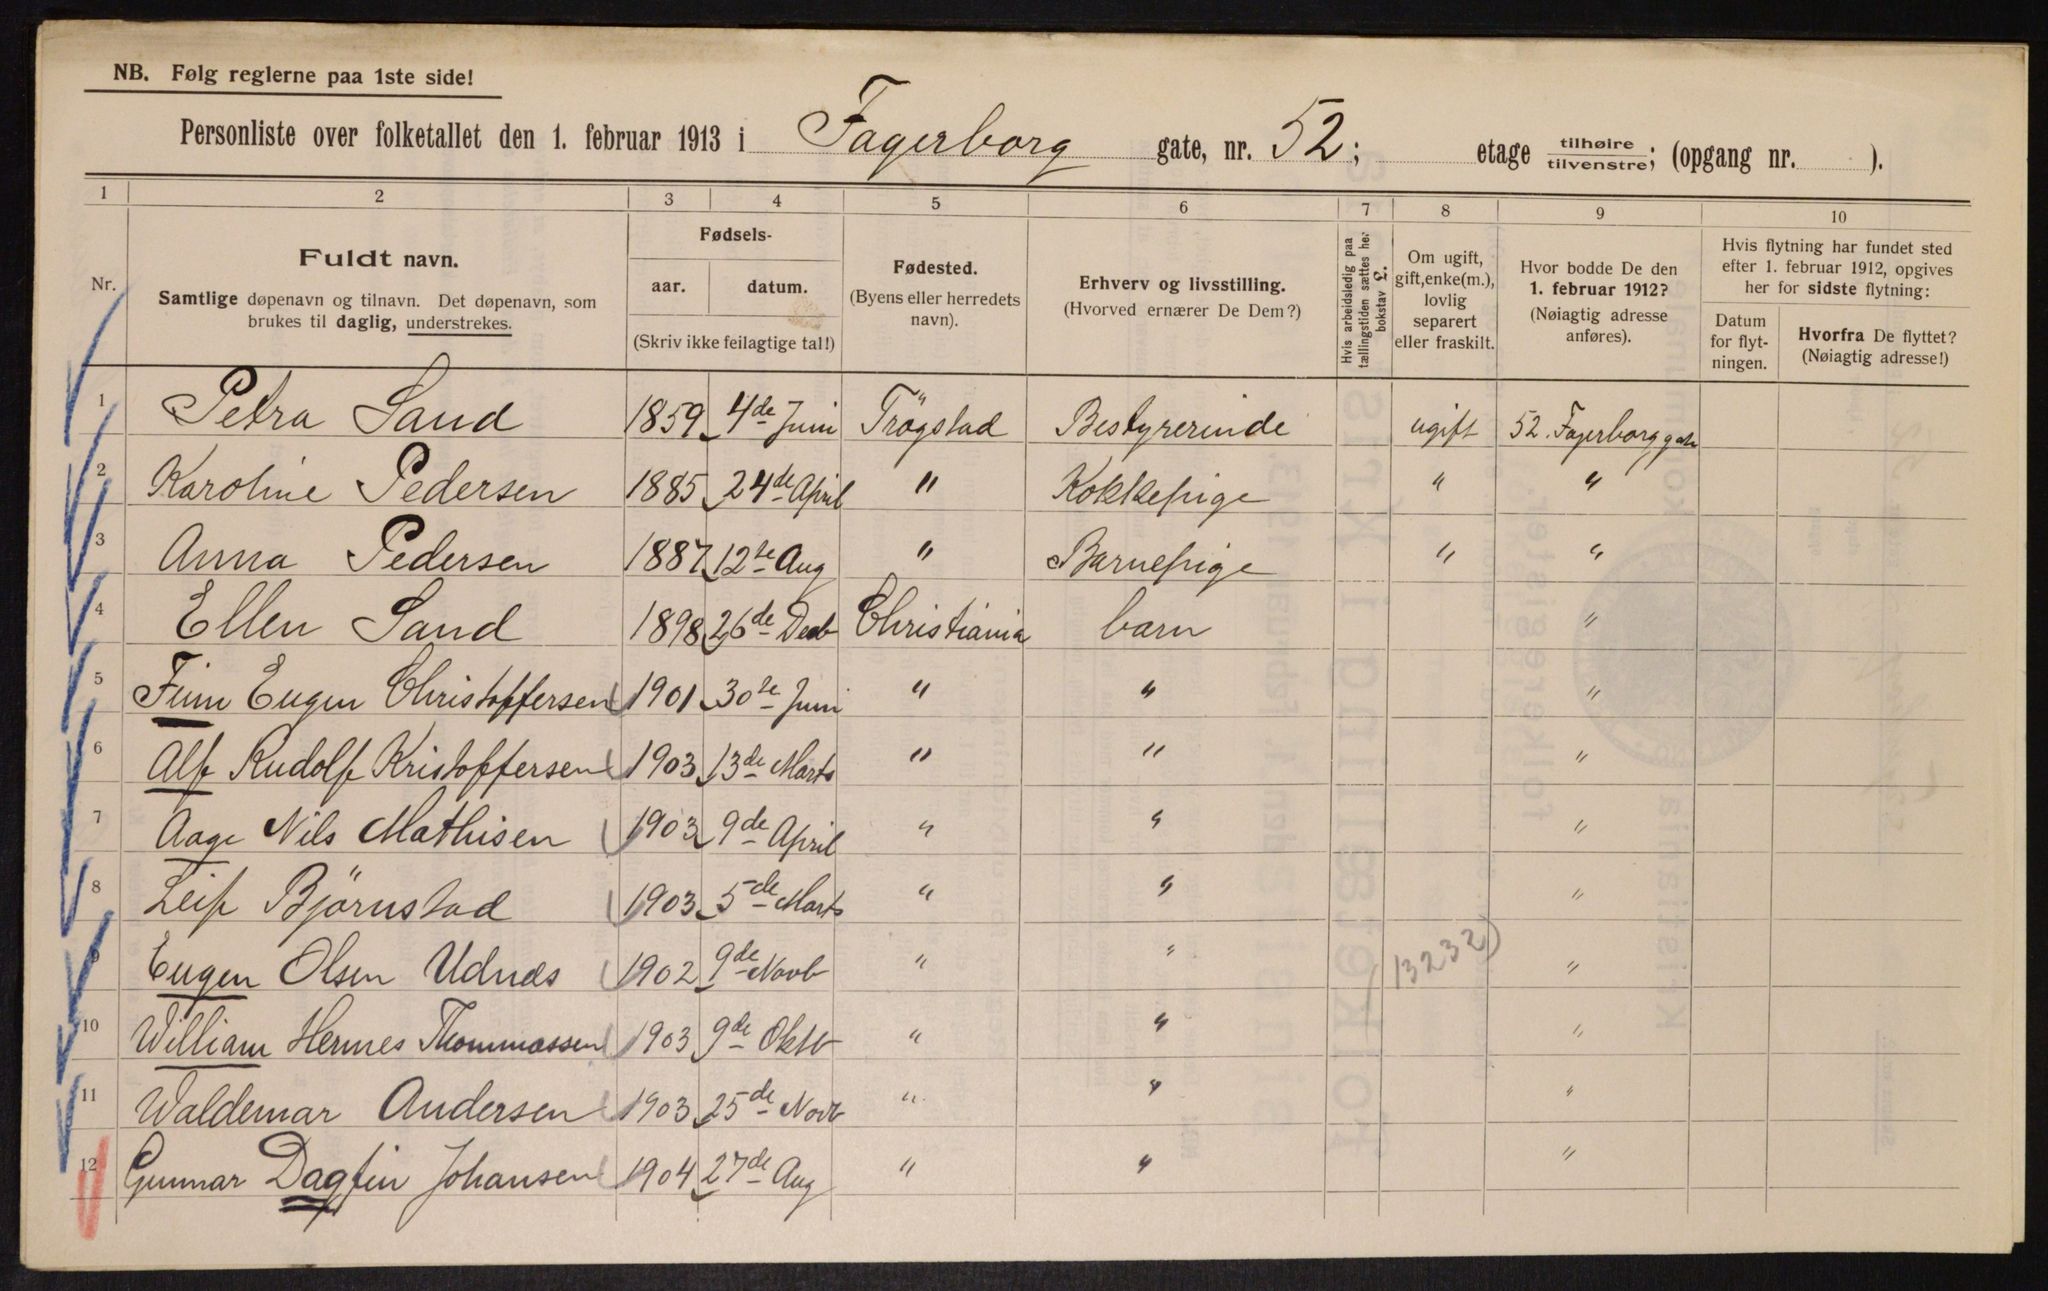 NB. Følg reglerne paa 1ste side!
Personliste over folketallet den 1. februar 1913 i Fagerborg gate, nr. 52; etage tilhøire/tilvenstre; (opgang nr. ).
1 2 3 4 5 6 7 8 9 10
Nr.
Fuldt navn.
Samtlige døpenavn og tilnavn. Det døpenavn, som
brukes til daglig, understrekes.
Fødsels-
aar. datum.
(Skriv ikke feilagtige tal!)
Fødested.
(Byens eller herredets
navn).
Erhverv og livsstilling.
(Hvorved ernærer De Dem?)
Hvis arbeidsledig paa
tællingstiden sættes her
bokstav £.
Om ugift,
gift, enke(m.),
lovlig
separert
eller fraskilt.
Hvor bodde De den
1. februar 1912?
(Nøiagtig adresse
anføres).
Hvis flytning har fundet sted
efter 1. februar 1912, opgives
her for sidste flytning:
Datum
for flyt-
ningen.
Hvorfra De flyttet?
(Nøiagtig adresse!)
1 Petra Sand 1859 4de Juni Trögstad Bestyrerinde ugift 52. Fagerborggate
2 Karoline Pedersen 1885 24de April " Kokkepige " "
3 Anna Pedersen 1887 12te Aug " Barnepige " "
4 Ellen Sand 1898 26de Decb Christiania barn "
5 Finn Eugen Christoffersen 1901 30te Juni " " "
6 Alf Rudolf Kristoffersen 1903 13de Marts " " "
7 Aage Nils Mathisen 1903 9de April " " "
8 Leif Björnstad 1903 5de Marts " " "
9 Eugen Olsen Udnæs 1902 9de Novb " " 13232) "
10 William Hermes Thommassen 1903 9de Oktb " " "
11 Waldemar Andersen 1903 25de Novb " " "
12 Gunnar Dagfin Johansen 1904 27de Aug " " "